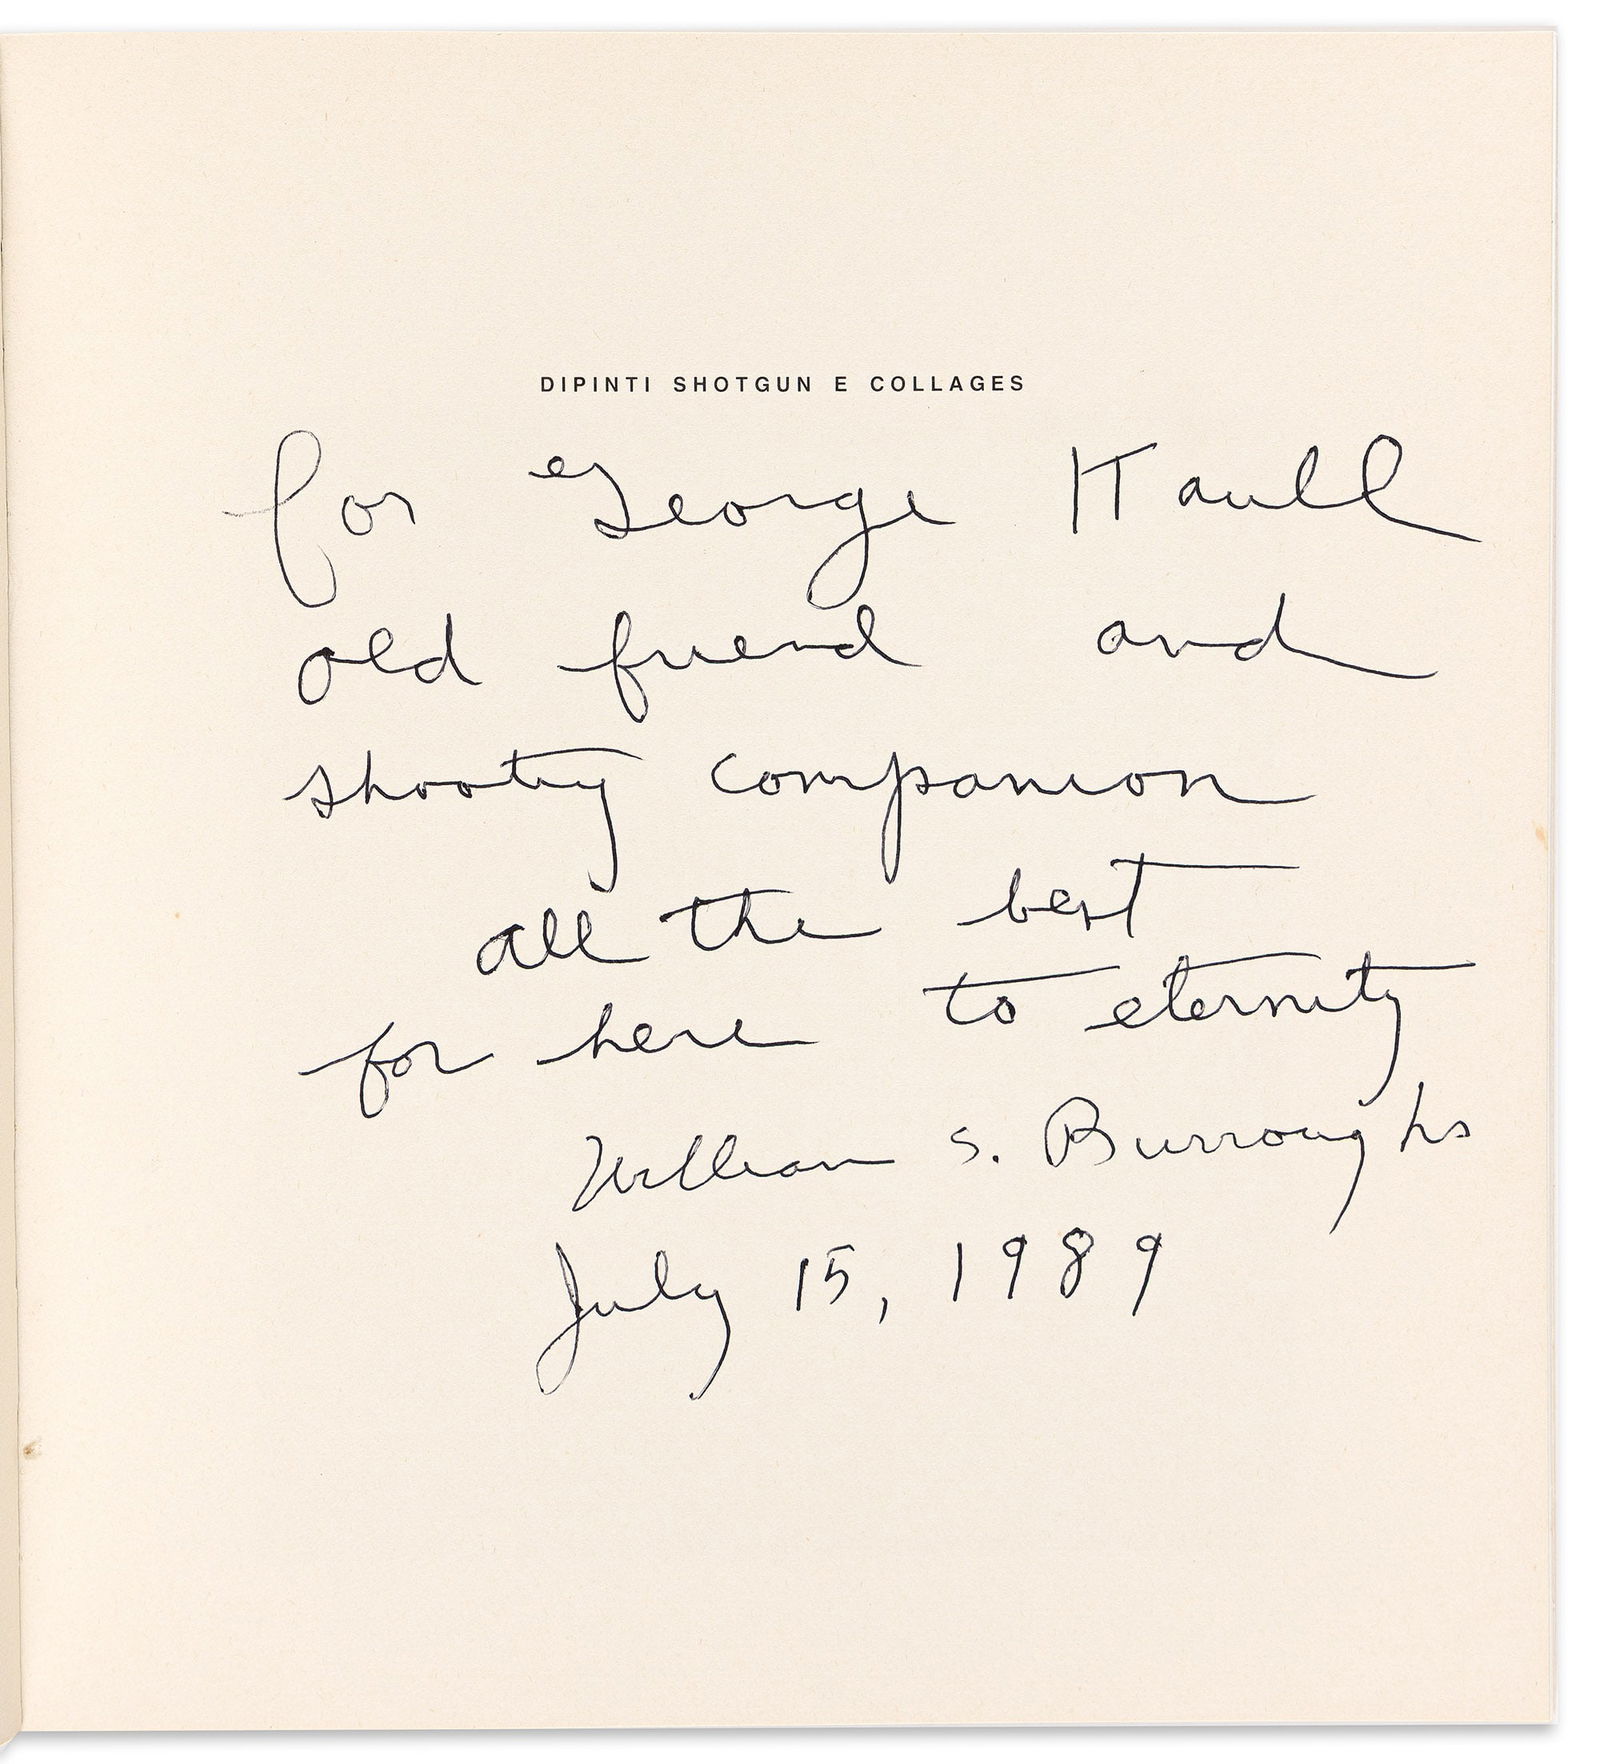 DIPINTI SHOTGUN E COLLAGES
for George Kaull
old friend and
shooting companion
all the best
for here to eternity
William S. Burroughs
July 15, 1989